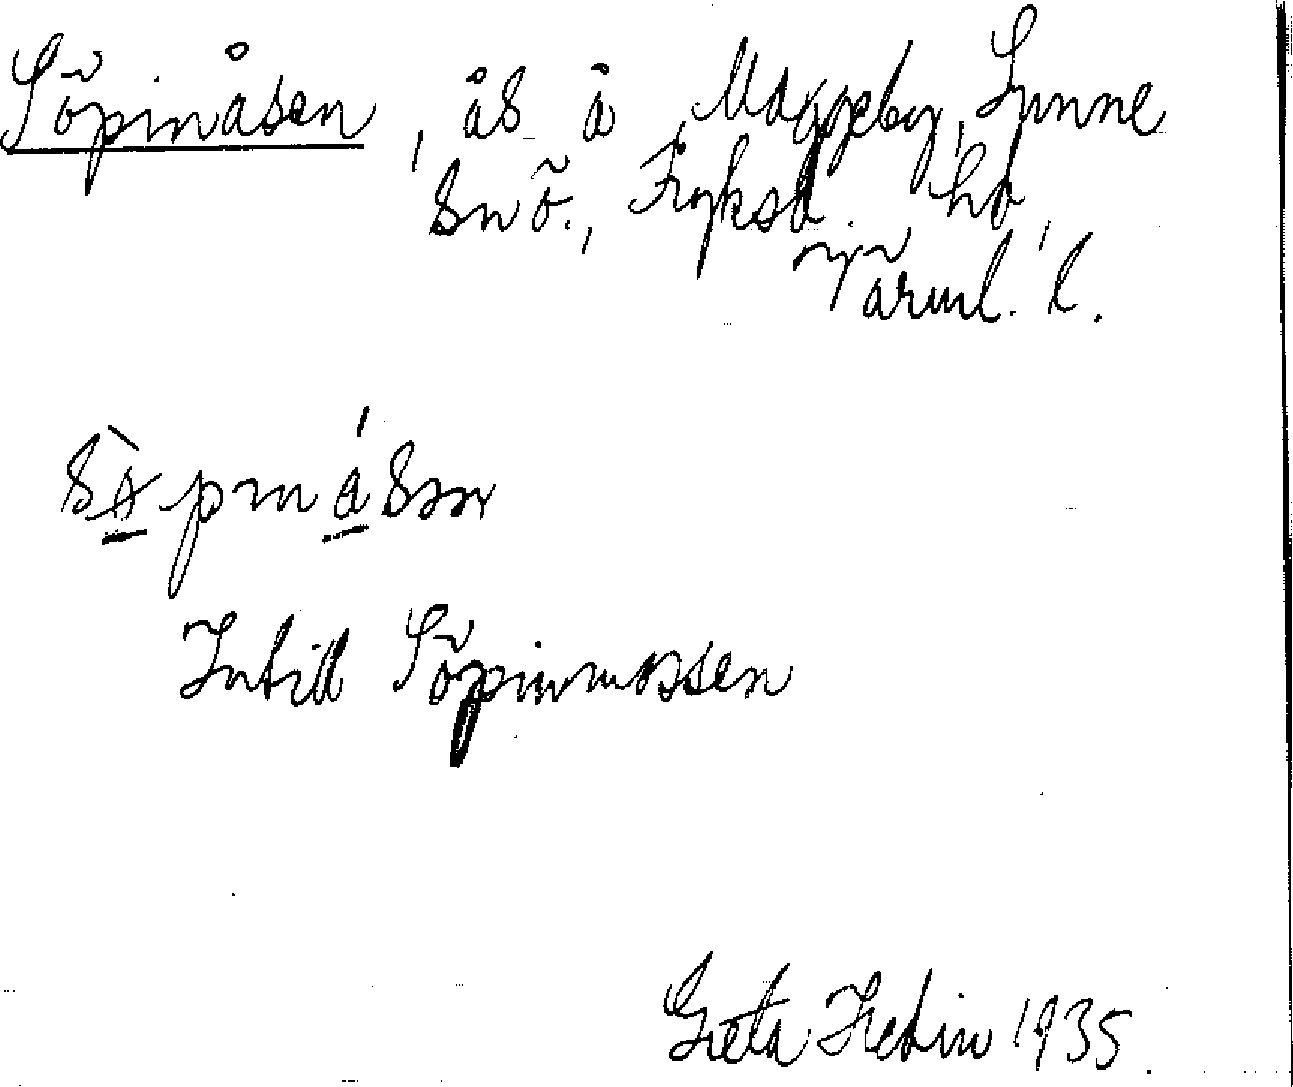 Söpinåsen, ås å Maggeby, Sunne
sn ö., Fryksd. hd,
Värml. l.
Intill Söpinmossen
Greta Hedin 1935